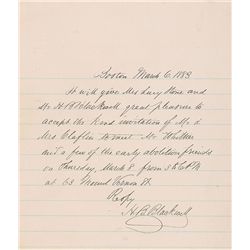 Boston March 6, 1888
It will give Mrs Lucy Stone and
Mr H B Blackwell great pleasure to
accept the kind invitation of Mr &
Mrs Claflin to meet Mr Whittier
and a few of the early abolition friends
on Thursday, March 8 from 3 to 6 P M
at 63 Mount Vernon St
Resply
H. B. Blackwell